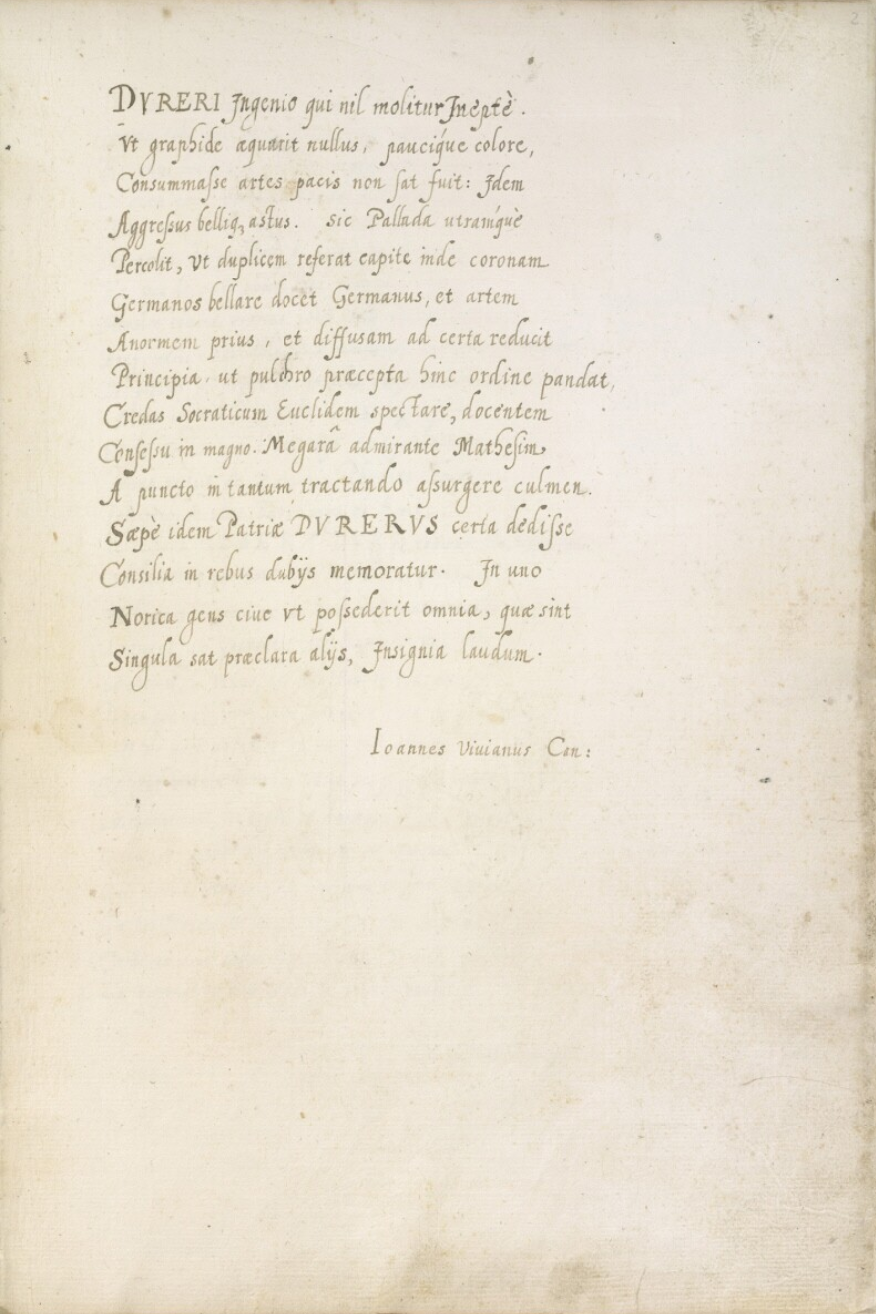 2
DVRERI Ingenio qui nil molitur Ineptè.
Vt graphide æquarit nullus, pauciq́ue colore,
Consummaſse artes pacis non ſat fuit: Idem
Aggreſsus belliq, astus. Sic Pallada utramq́uè
Percolit, Vt duplicem referat capite inde coronam
Germanos bellare docet Germanus, et artem
Anormem prius, et diffusam ad certa reducit
Principia. ut pulchro præcepta hinc ordine pandat,
Credas Socraticum Euclidem spectare, docentem
Conſeſsu in magno. Megarâ admirante Matheſim,
A puncto in tantum tractando aſsurgere culmen.
Sæpè idem Patriæ DVRERVS certa dediſse
Consilia in rebus dubijs memoratur. In uno
Norica gens ciue vt poſsederit omnia, quæ sint
Singula sat præclara alijs, Insignia laudum.
Ioannes Viuianus Can: